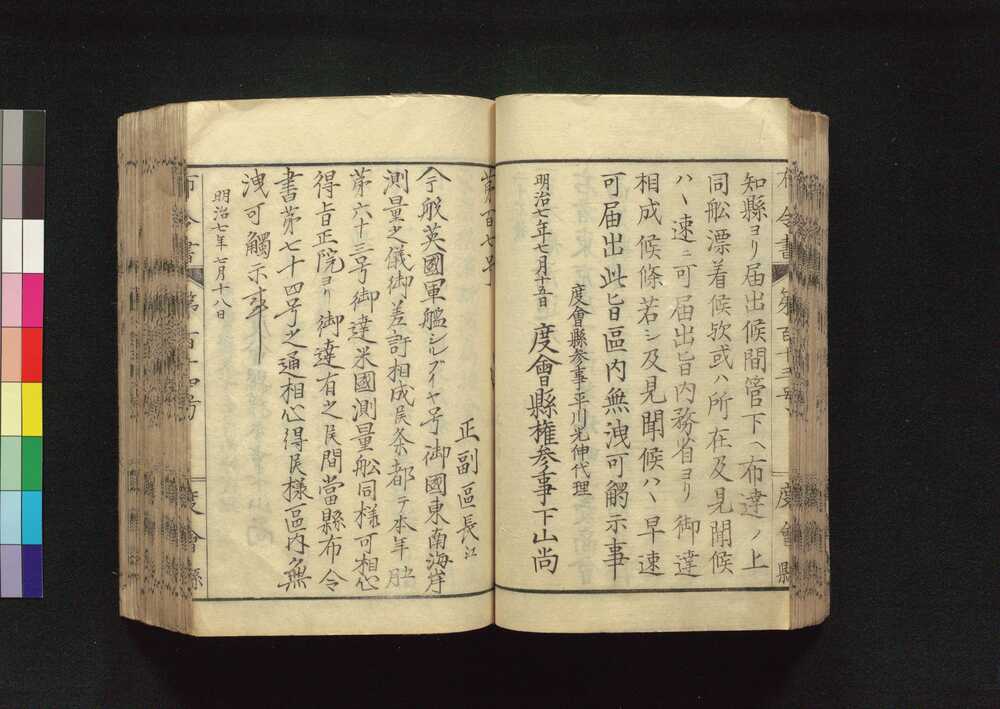 布令書 第百十三号 度會縣
知縣ヨリ届出候間管下ヘ布達ノ上
同舩漂着候欤或ハ所在及見聞候
ハヽ速ニ可届出旨内務省ヨリ御達
相成候條若シ及見聞候ハヽ早速
可届出此旨區内無洩可觸示事
度會縣参事平川光伸代理
明治七年七月十五日 度會縣権参事下山尚
第百七号
正副區長江
今般英國軍艦シルブイヤ号御國東南海岸
測量之儀御差許相成候条都テ本年
第六十三号御達米國測量舩同様可相心
得旨正院ヨリ御達有之候間當縣布令
書第七十四号之通相心得候様區内無
洩可觸示事
明治七年七月十八日
布令書 第百十四号 度會縣